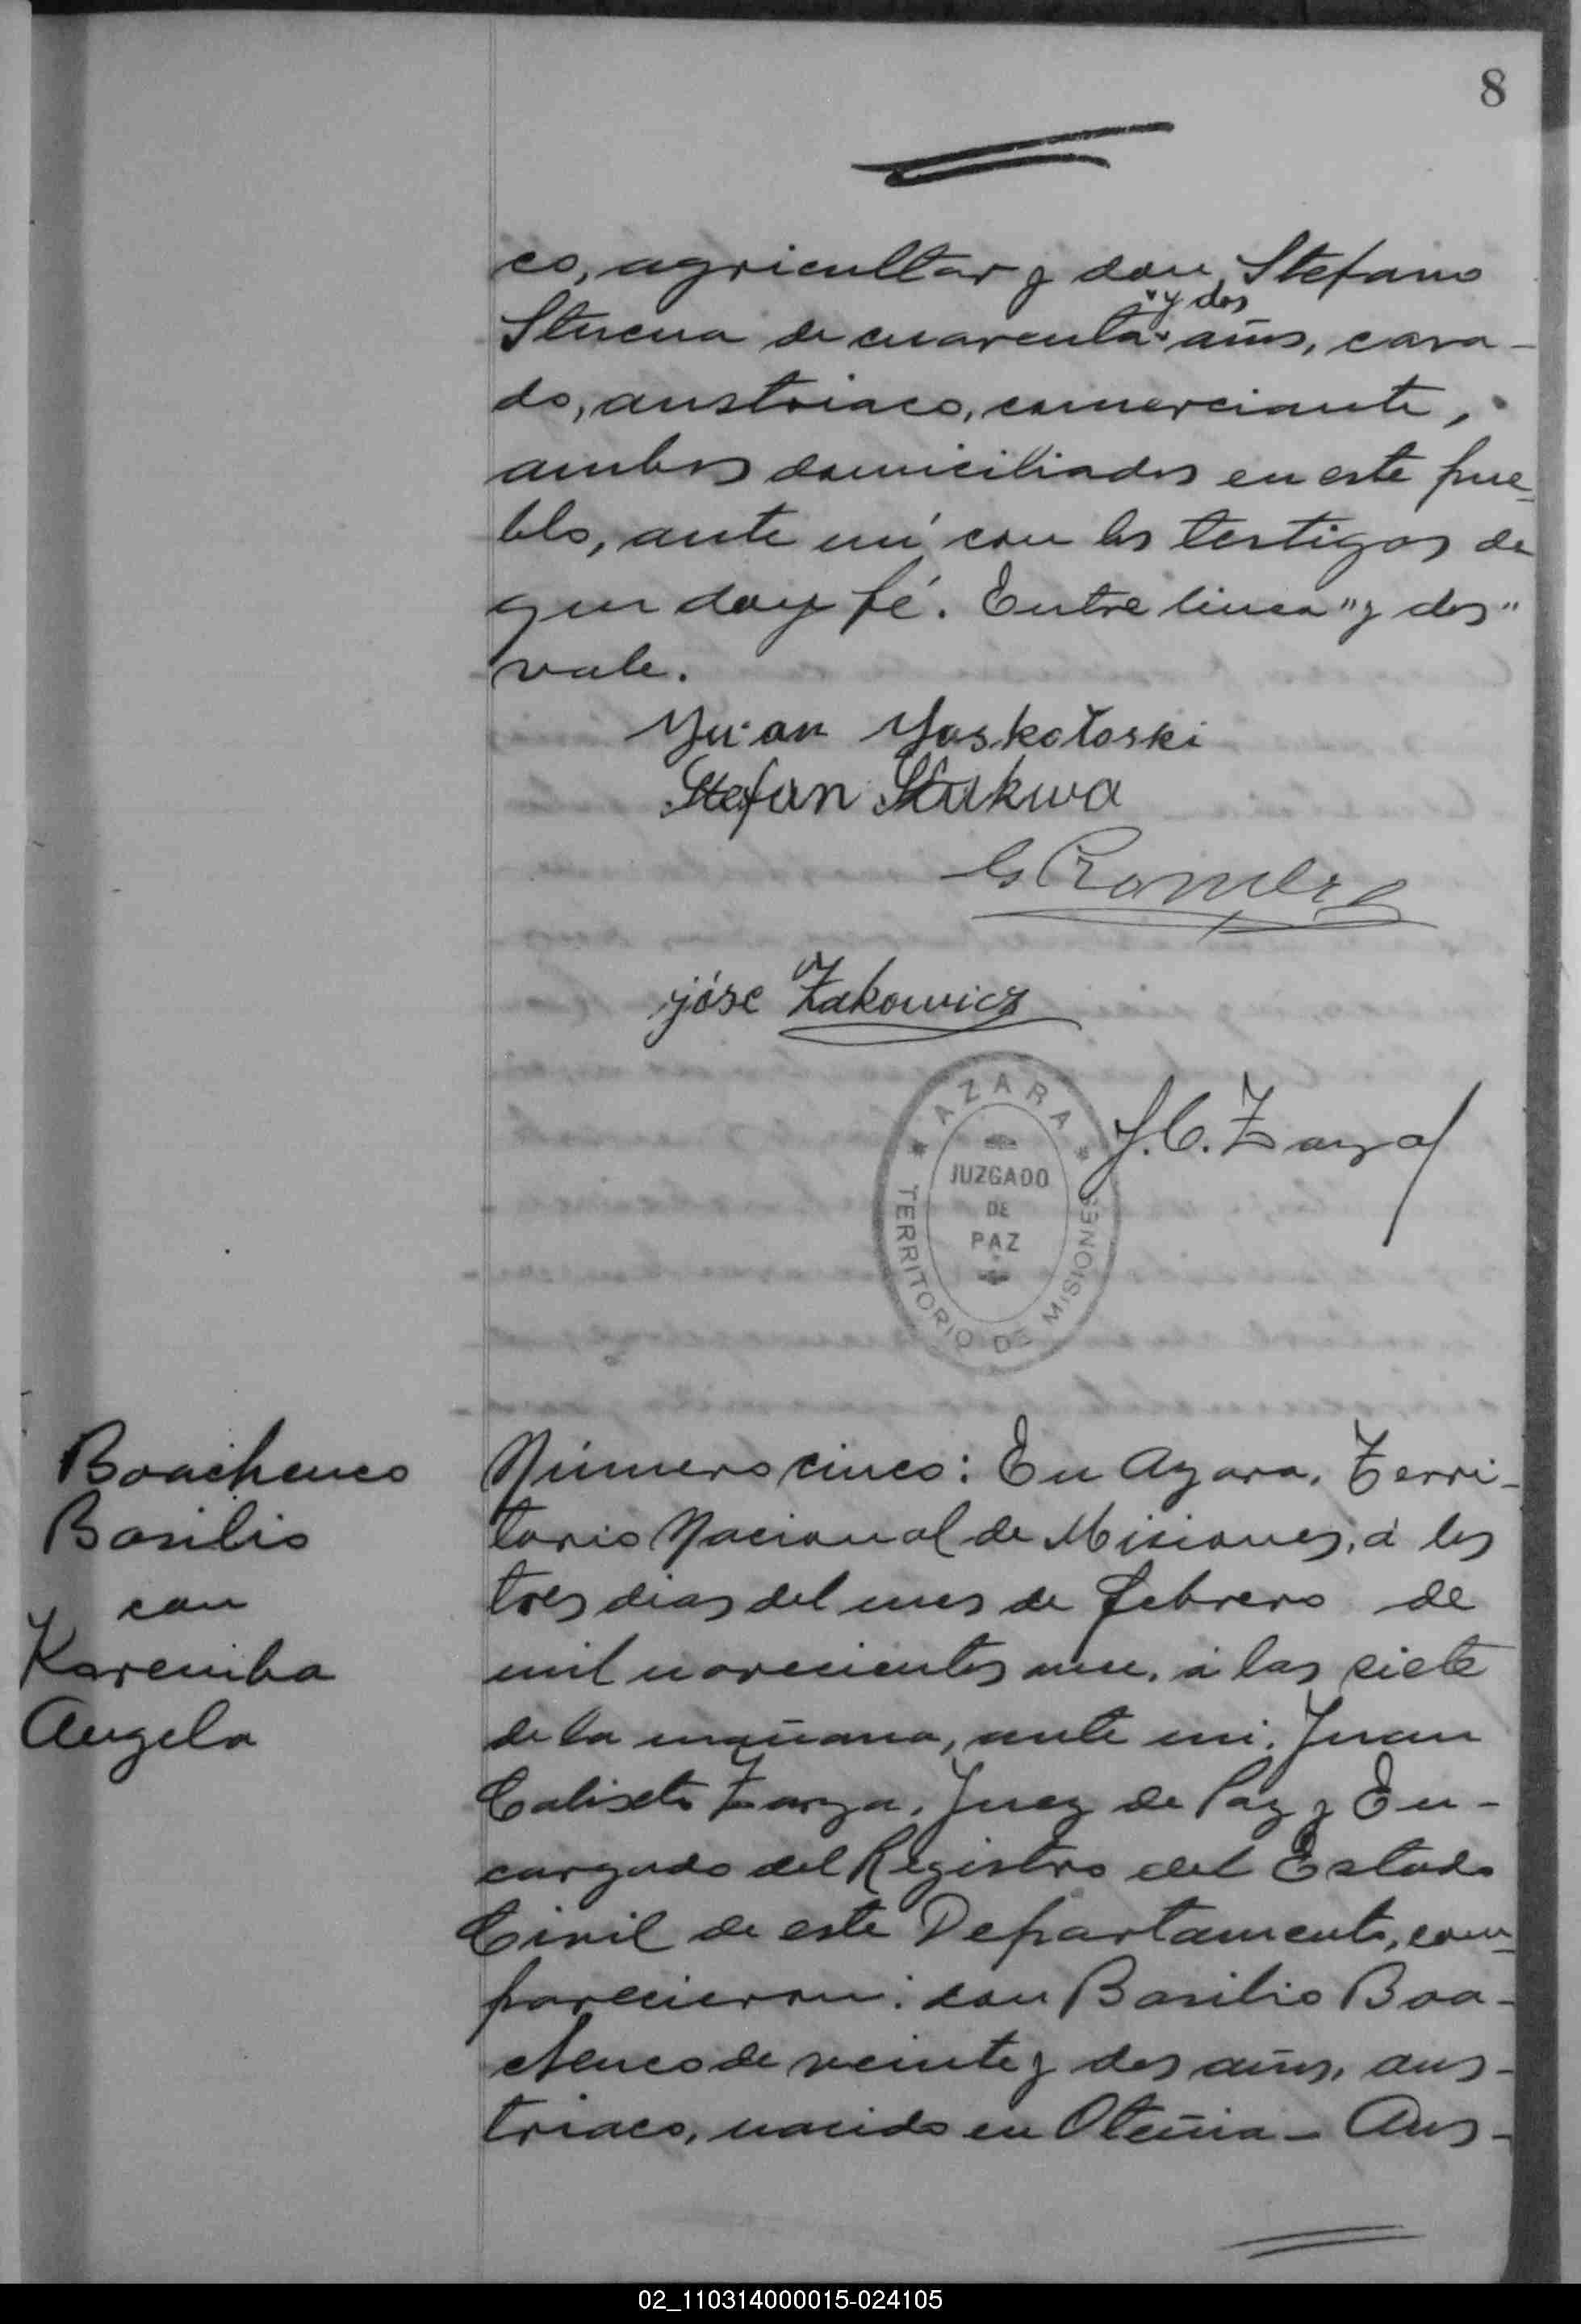 8
co, agricultor y don Stefano
y dos
Stucua de cuarenta años, casa-
do, austriaco, comerciante,
ambos domiciliados en este pue-
blo, ante mí con los testigos de
que doy fé. Entre linea "y dos"
vale.
Yuan Yaskołoski
Stefan Stukwa
G Romero
jóse Żakowicz
AZARA
JUZGADO
DE
PAZ
TERRITORIO DE MISIONES
J. C. Zarza
Boachenco
Basilio
con
Karemba
Angela
Número cinco: En Azara, Terri-
torio Nacional de Misiones, á los
tres dias del mes de febrero de
mil novecientos once, á las siete
de la mañana, ante mi, Juan
Calixto Zarza, Juez de Paz y En-
cargado del Registro del Estado
Civil de este Departamento, com-
parecieron: don Basilio Boa-
chenco de veinte y dos años, aus-
triaco, nacido en Oteñia - Aus-
02_110314000015-024105